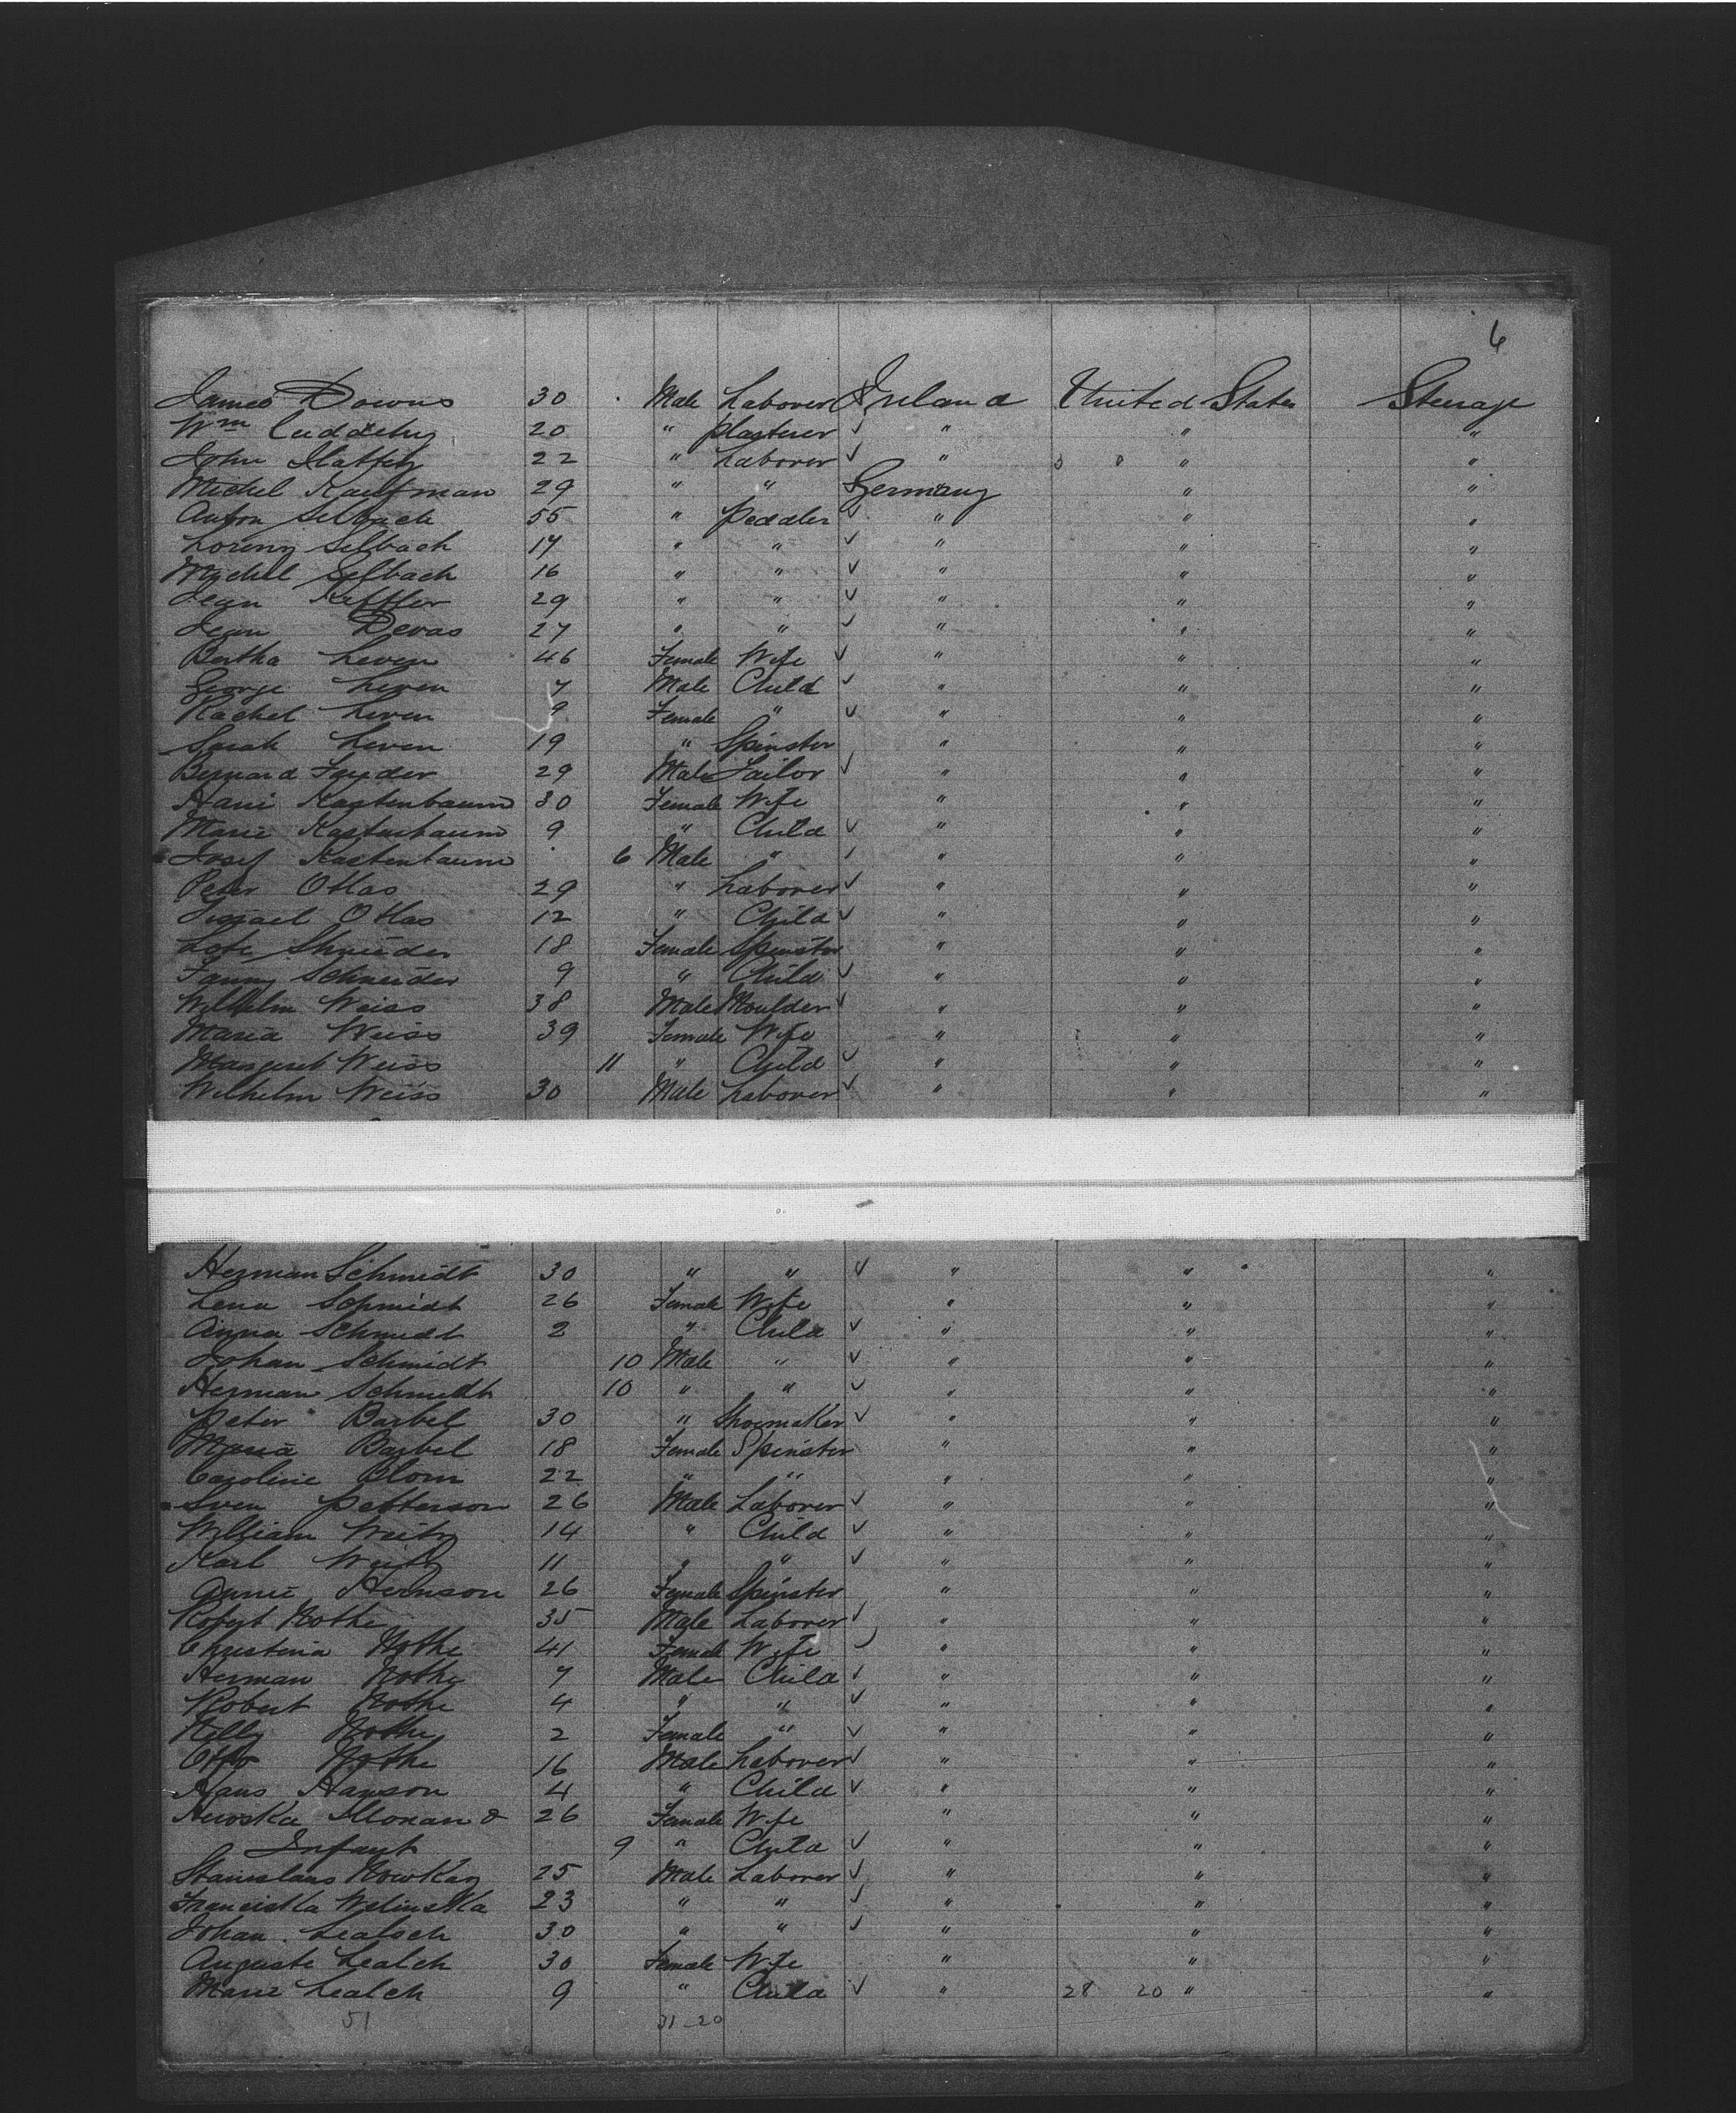 6
James Downs 30 Male Laborer Ireland United States Steerage
Wm Cuddehy 20 " plasterer ✓ " " "
John Slattery 22 " Laborer ✓ " 3 8 " "
Michel Kaufman 29 " " Germany " "
Anton Selbach 55 " Peddler ✓ " " "
Lorenz Selbach 17 " " ✓ " " "
Michel Selbach 16 " " ✓ " " "
Jean Keffler 29 " " ✓ " " "
Jean Devas 27 " " ✓ " " "
Bertha Leven 46 Female Wife ✓ " " "
George Leven 7 Male Child ✓ " " "
Rachel Leven 9 Female " ✓ " " "
Sarah Leven 19 " Spinster " " "
Bernard 29 Male Tailor ✓ " " "
Hani Kastenbaum 30 Female Wife " " "
Marie Kastenbaum 9 " Child ✓ " " "
Josef Kastenbaum 6 Male " ✓ " " "
Peter Otlas 29 " Laborer ✓ " " "
Otlas 12 " Child ✓ " " "
Lote Shneider 18 Female Spinster " " "
Fanny Schneider 9 " Child ✓ " " "
Wilhelm Weiss 38 Male Moulder ✓ " " "
Maria Weiss 39 Female Wife " " "
Margaret Weiss 11 " Child ✓ " " "
Wilhelm Weiss 30 Male Laborer ✓ " " "
Herman Schmidt 30 " " ✓ " " "
Lena Schmidt 26 Female Wife " " "
Anna Schmidt 2 " Child ✓ " " "
Johan Schmidt 10 Male " ✓ " " "
Herman Schmidt 10 " " ✓ " " "
Peter Barbel 30 " Shoemaker ✓ " " "
Maria Barbel 18 Female Spinster " " "
Caroline Blom 22 " " " " "
Sven Petterson 26 Male Laborer ✓ " " "
William Weitz 14 " Child ✓ " " "
Karl Weitz 11 " " ✓ " " "
Annie Hermson 26 Female Spinster " " "
Robert Nothe 35 Male Laborer ✓ " " "
Christina Nothe 41 Female Wife ✓ " " "
Herman Nothe 7 Male Child ✓ " " "
Robert Nothe 4 " " ✓ " " "
Nelly Nothe 2 Female " ✓ " " "
Otto Nothe 16 Male Laborer ✓ " " "
Hans Hanson 4 " Child ✓ " " "
26 Female Wife " " "
Infant 9 " Child ✓ " " "
Stanislaus 25 Male Laborer ✓ " " "
Franciska Welinska 23 " " ✓ " " "
Johan Lealsch 30 " " ✓ " " "
Auguste Lealch 30 Female Wife " " "
Marie Lealch 9 " Child ✓ " 28 20 " "
51 31-20